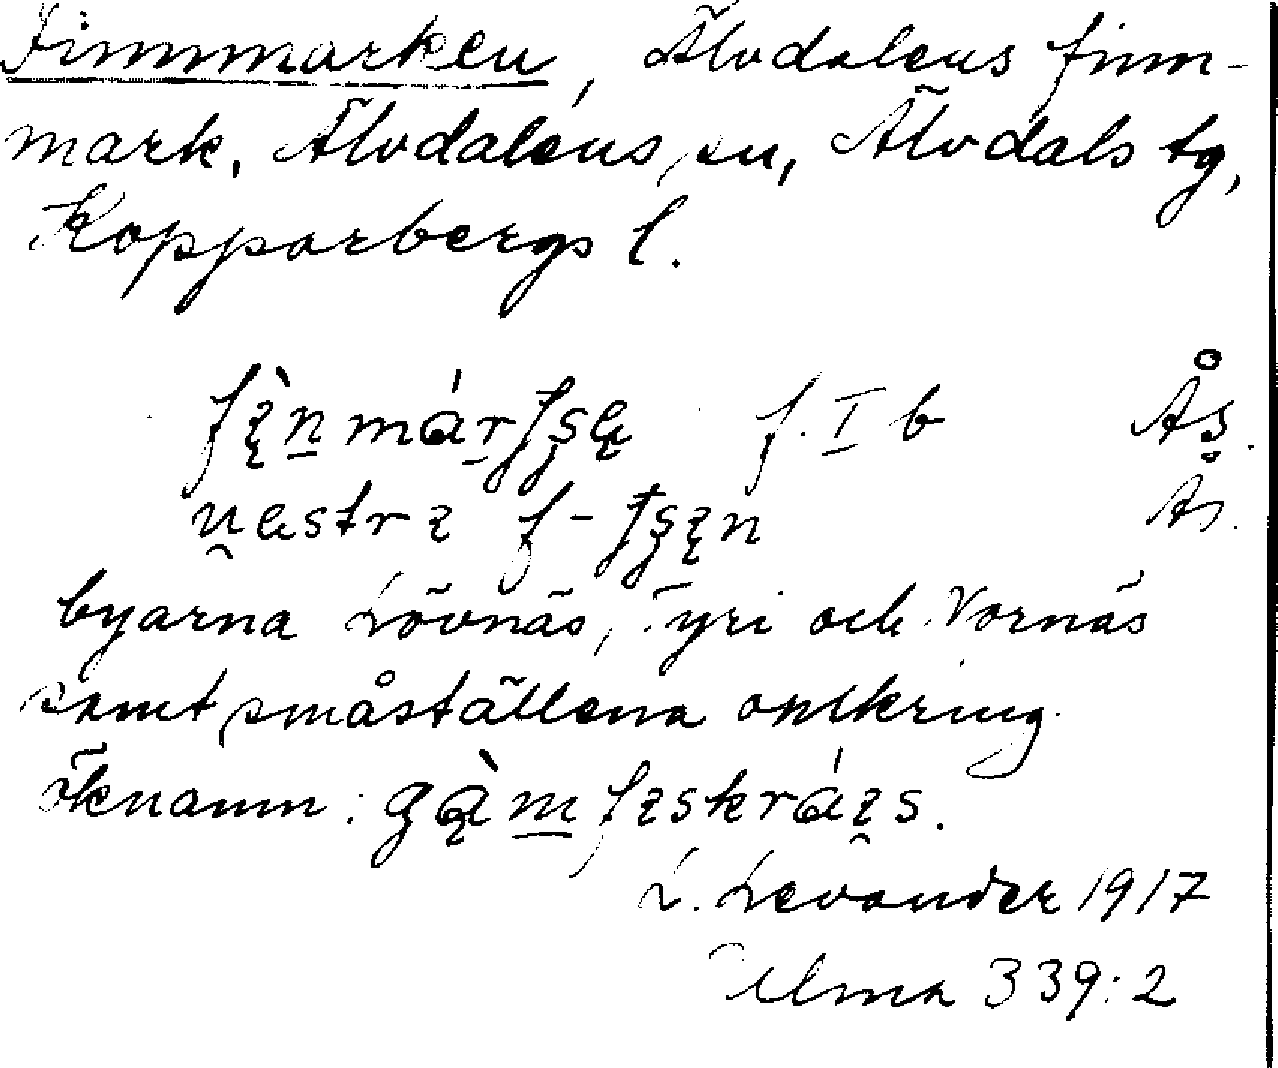 Finnmarken, Älvdalens finn-
mark, Älvdalens sn, Älvdals tg,
Kopparbergs l.
f. I b Ås.
Ås.
byarna Lövnäs, Tyri och Vornäs
samt småställena omkring.
öknamn:
L. Levander 1917
Ulma 339:2